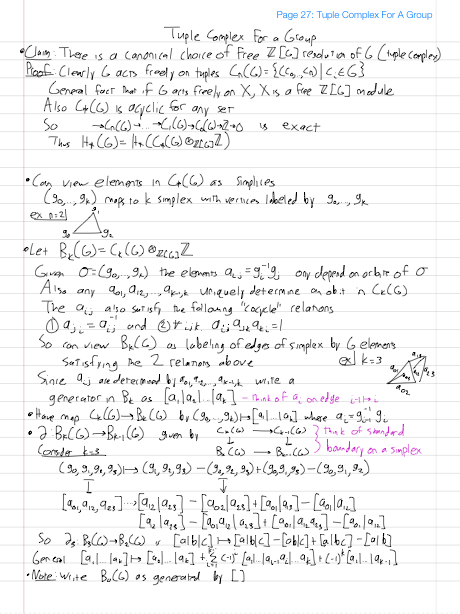 Page 27: Tuple Complex For A Group
Tuple Complex For a Group
• Claim: There is a canonical choice of Free ℤ[G] resolution of G (tuple complex)
Proof: Clearly G acts freely on tuples Cₙ(G) = {(c₀,...,cₙ) | cᵢ∈G}
General fact that if G acts freely on X, X is a free ℤ[G] module
Also C_*(G) is acyclic for any set
So → Cₙ(G) → ... → C₁(G) → C₀(G) → ℤ → 0 is exact
Thus H_*(G) = H_*(C_*(G) ⊗_ℤ[G] ℤ)
• Can view elements in C_*(G) as simplices
(g₀,...,gₖ) maps to k simplex with vertices labeled by g₀,...,gₖ
ex n=2
g₁
g₀ g₂
• Let Bₖ(G) = Cₖ(G) ⊗_ℤ[G] ℤ
Given σ = (g₀,...,gₖ) the elements aᵢ,ⱼ = gᵢ⁻¹gⱼ only depend on orbit of σ
Also any a₀₁, a₁₂, ..., aₖ₋₁,ₖ uniquely determine an orbit in Cₖ(G)
The aᵢⱼ also satisfy the following "cocycle" relations
① aⱼ,ᵢ = aᵢ,ⱼ⁻¹ and ② ∀ i,j,k. aᵢⱼ aⱼₖ aₖᵢ = 1
So can view Bₖ(G) as labeling of edges of simplex by G elements
satisfying the 2 relations above
ex k=3
a₀₂
a₂₃
Since aᵢⱼ are determined by a₀₁, a₁₂, ..., aₖ₋₁,ₖ write a
generator in Bₖ as [a₁|a₂|...|aₖ] - think of aᵢ on edge i-1→i
• Have map Cₖ(G) → Bₖ(G) by (g₀,...,gₖ) ↦ [a₁|...|aₖ] where aᵢ = gᵢ₋₁⁻¹ gᵢ
• ∂: Bₖ(G) → Bₖ₋₁(G) given by
Cₖ(G) → Cₖ₋₁(G)
↓ ↓
Bₖ(G) → Bₖ₋₁(G)
} Think of standard
boundary on a simplex
Consider k=3
(g₀,g₁,g₂,g₃) ↦ (g₁,g₂,g₃) - (g₀,g₂,g₃) + (g₀,g₁,g₃) - (g₀,g₁,g₂)
[a₀₁,a₁₂,a₂₃] ⇢ [a₁₂|a₂₃] - [a₀₂|a₂₃] + [a₀₁|a₁₃] - [a₀₁|a₁₂]
[a₁₂|a₂₃] - [a₀₁a₁₂|a₂₃] + [a₀₁|a₁₂a₂₃] - [a₀₁|a₁₂]
So ∂₃: B₃(G) → B₂(G) is [a|b|c] ↦ [b|c] - [ab|c] + [a|bc] - [a|b]
General [a₁|...|aₖ] ↦ [a₂|...|aₖ] + Σ (-1)ⁱ [a₁|...|aᵢ₋₁aᵢ|...aₖ] + (-1)ᵏ [a₁|...|aₖ₋₁]
• Note: Write B₀(G) as generated by []